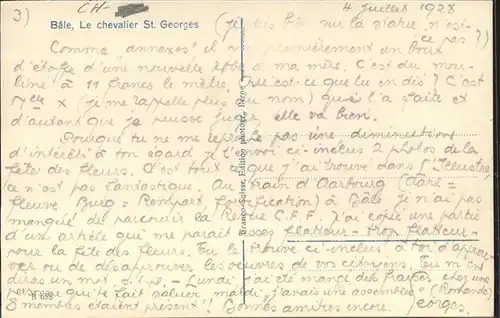 3) CH- 4 Juillet 1928
Bâle, Le chevalier St. Georges
(je très sur la n'est-
ce pas?)
Comme annexes il y premièrement un bout
d'étoffe d'une nouvelle robe à ma mère. C'est du mou-
liné à 11 francs le mètre. Qu'est-ce que tu en dis? C'est
Mlle X (je me rappelle plus du nom) qui l'a faite et
d'autant que je puisse juger, elle va bien.
Pourque tu ne me reproche pas une diminution
d'intérêts à ton égard je t'envoi ci-inclus 2 photos de la
fête des fleurs. C'est tout ce que j'ai trouvé dans l'Illustré,
ce n'est pas fantastique. Au train d'Aarbourg (Aare=
fleuve Burg = Rempart, fortification) à Bâle je n'ai pas
manqué de parcourir la Revue C.F.F. J'ai copié une partie
d'un article qui me parait assez flatteur - trop flatteur -
pour la fête des fleurs. Tu le trouve ci-inclus à toi d'approu-
ver ou de désapprouver les oeuvres de vos citoyens. Tu m'en
diras un mot s.t.p. - Lundi j'ai été mangé des fraises chez une
personne qui te fait saluer, mardi j'avais une assemblée (Romande)
8 membres étaient présent!! Bonnes amitiés encore. Georges.
B 655
Franco-Suisse, Edition photogr. Berne